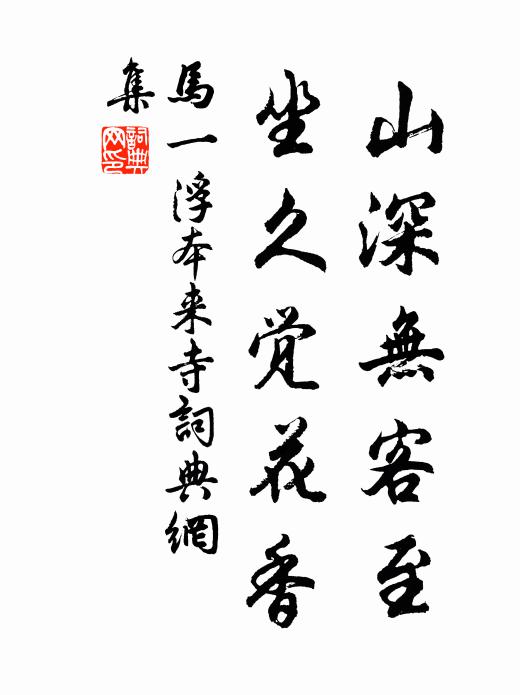 山深無客至
坐久觉花香
馬一浮本来寺詞典網
集
詞典
网印